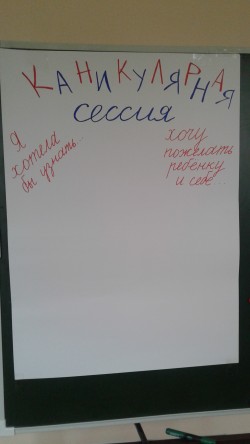 КАНИКУЛЯРНАЯ
сессия
Я
хотела
бы узнать...
хочу
пожелать
ребенку
и себе...